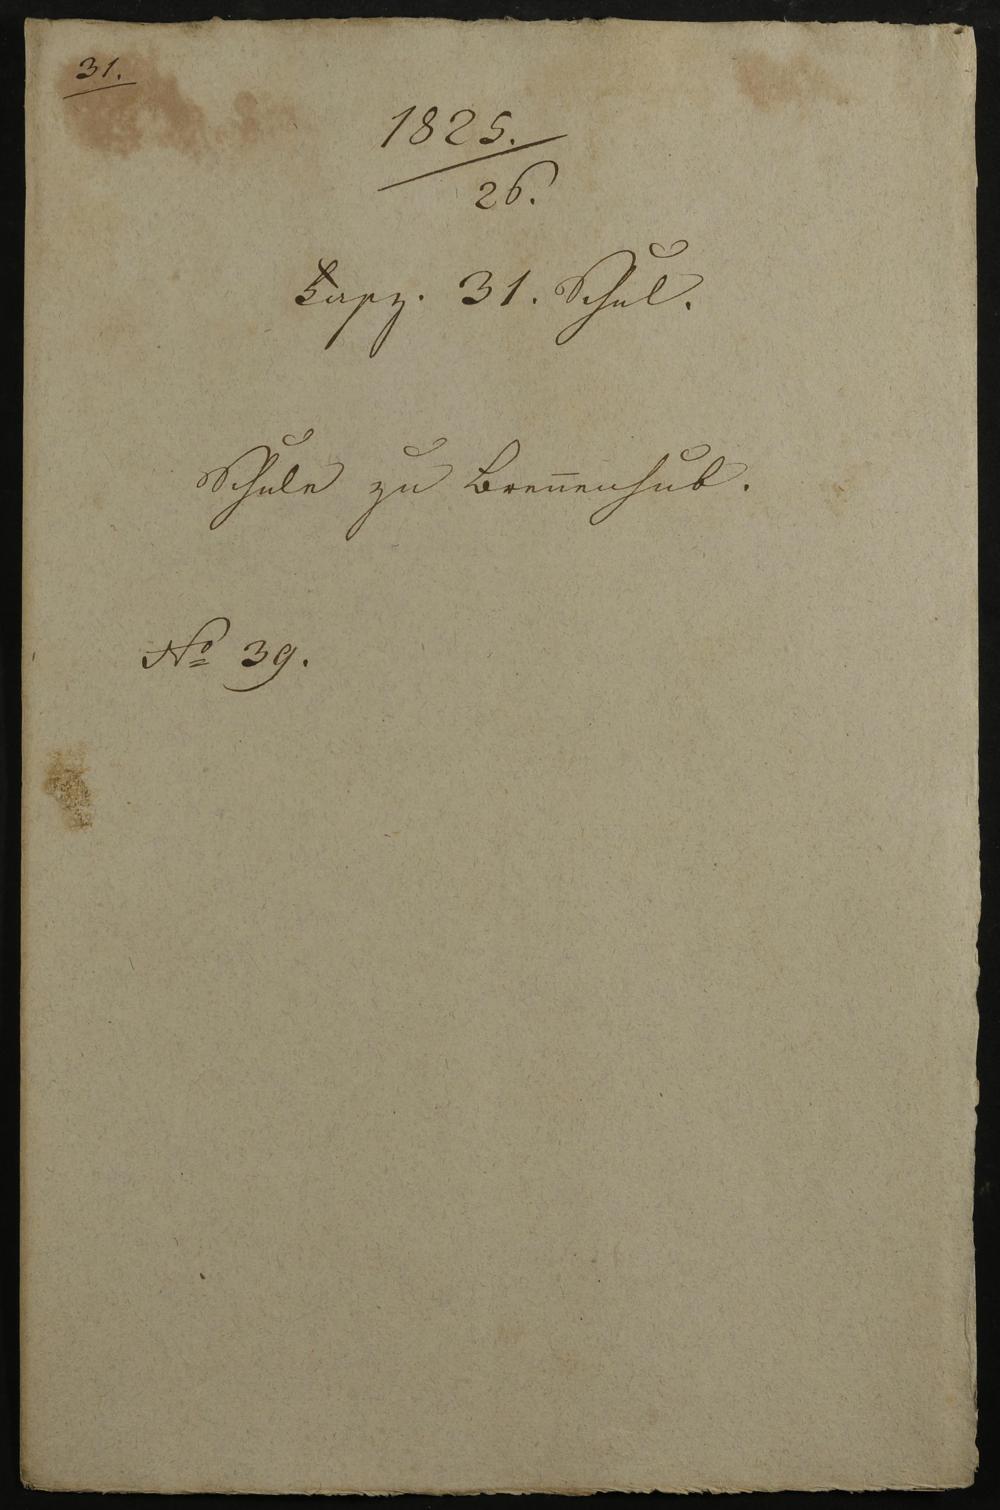 31.
1825.
26.
31. Schul.
Schule zu Breñenhub.
No 39.